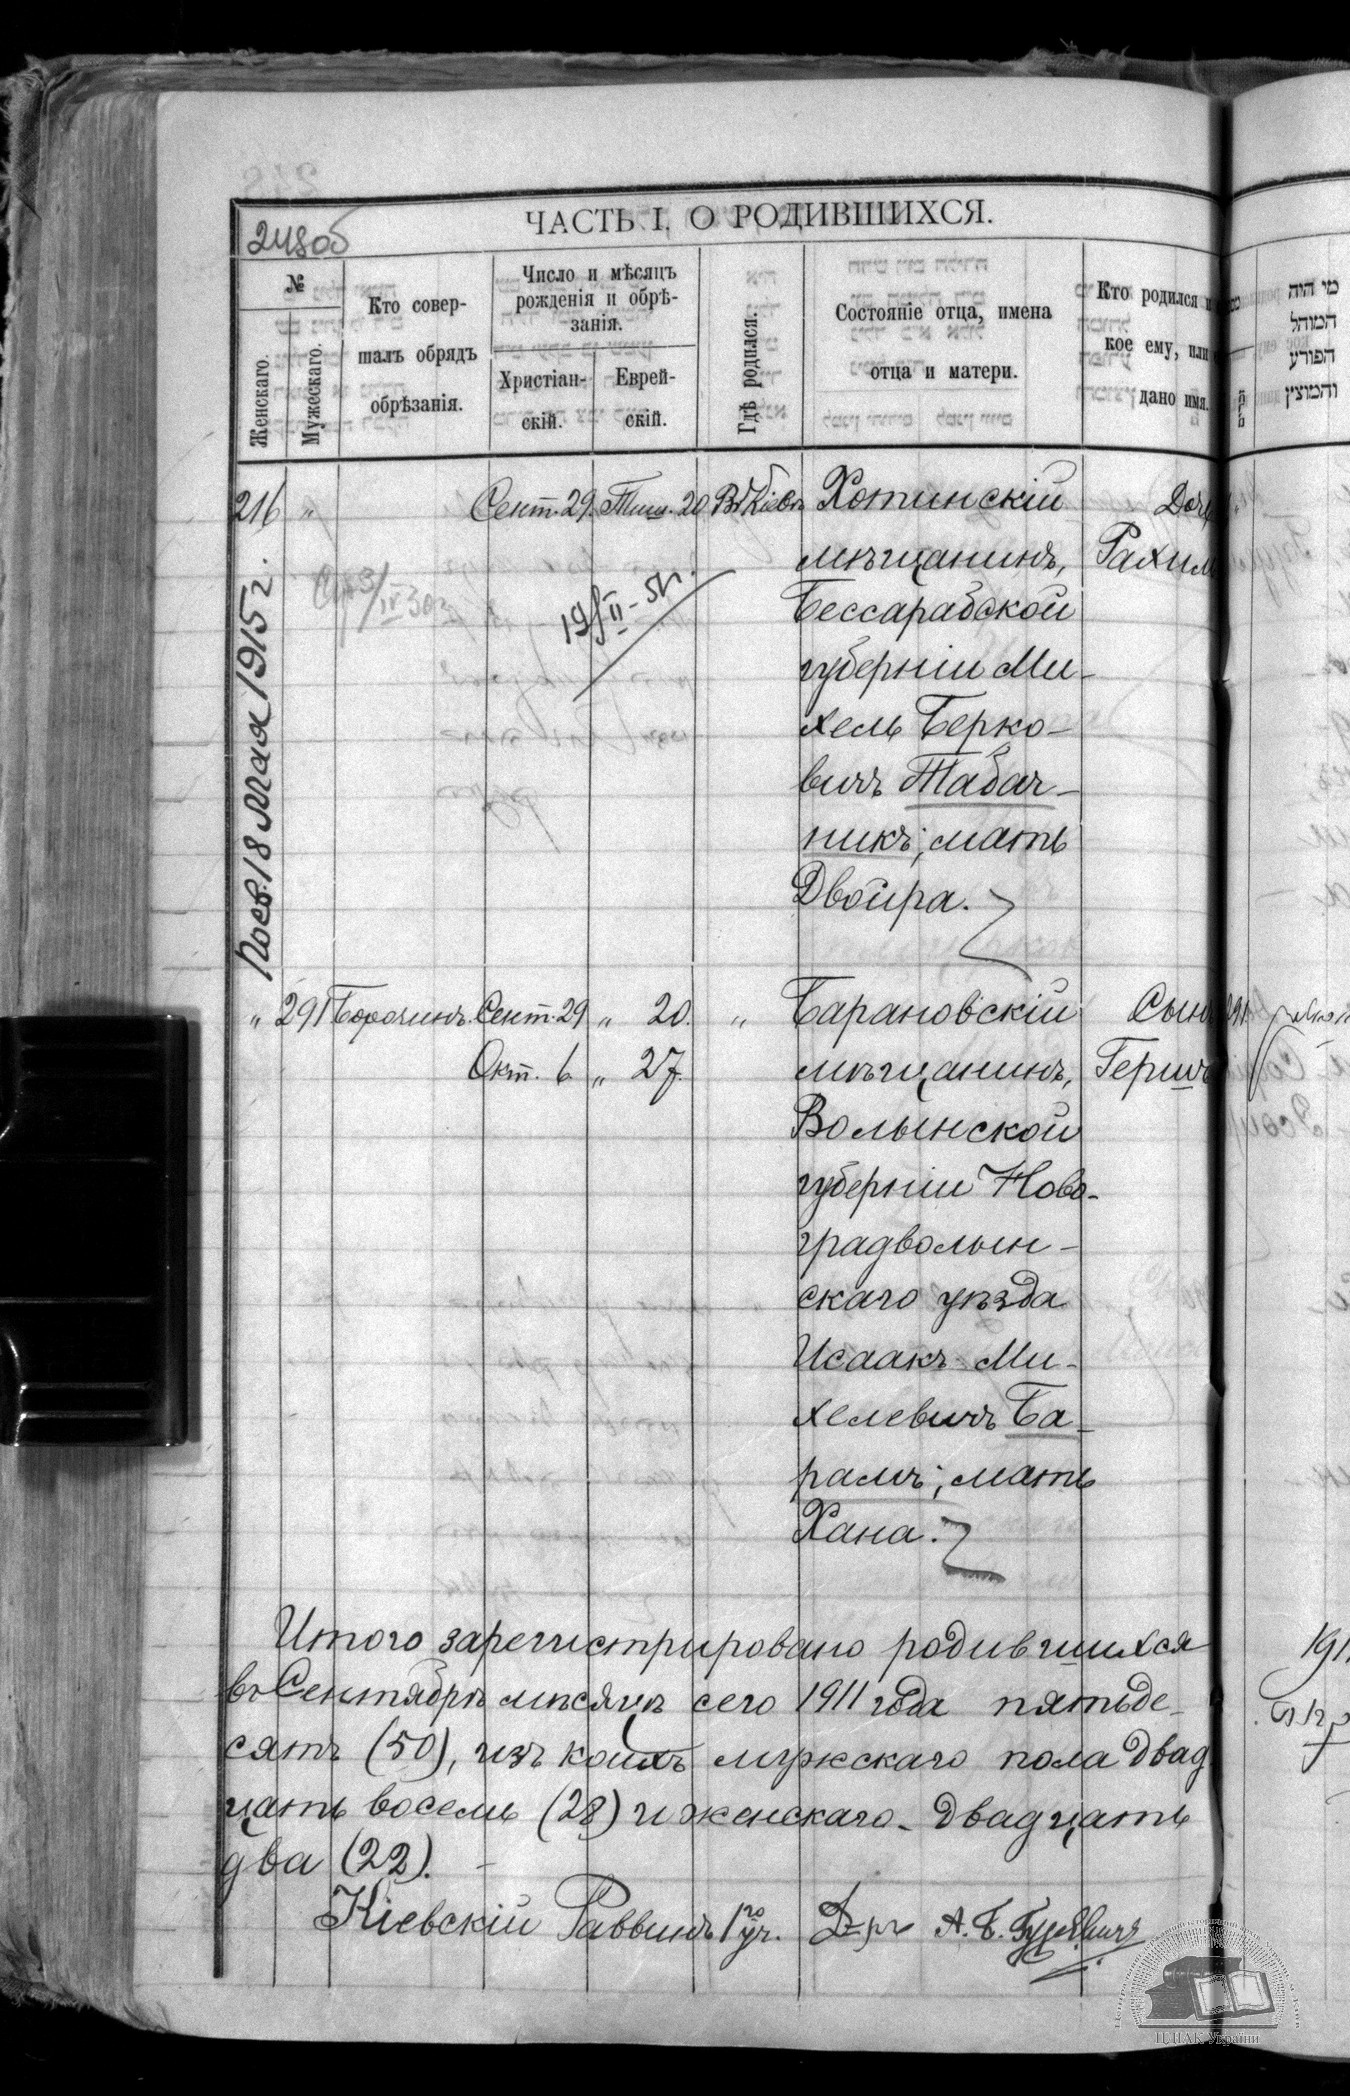 248об
ЧАСТЬ I, О РОДИВШИХСЯ.
№
Женскаго.
Мужескаго.
Кто совер-
шалъ обрядъ
обрѣзанія.
Число и мѣсяцъ
рожденія и обрѣ-
занія.
Христіан-
скій.
Еврей-
скій.
Гдѣ родился.
Состояніе отца, имена
отца и матери.
Кто родился и
кое ему, или
дано имя.
מי היה
המוהל
הפורע
והמוצץ
216 " Сент. 29. Тиш. 20 Въ Кіевѣ Хотинскій Дочь
мѣщанинъ, Рахиль
Бессарабской
губерніи Ми-
хель Берко-
вичъ Табач-
никъ; мать
Двойра.
19/II-51г.
18 Мая 1915 г.
" 291 Сент. 29 " 20. " Барановскій Сынъ 291
Окт. 6 " 27. мѣщанинъ, Гершъ
Волынской
губерніи Ново-
градволын-
скаго уѣзда
Исаакъ Ми-
хелевичъ Ба-
рамъ; мать
Хана.
Итого зарегистрировано родившихся
въ Сентябрѣ мѣсяцѣ сего 1911 года пятьде-
сятъ (50), изъ коихъ мужскаго пола двад
цать восемь (28) и женскаго - двадцать
два (22).
Кіевскій Раввинъ 1го уч. Д-ръ А. Б. Гуревичъ
ЦДІАК України